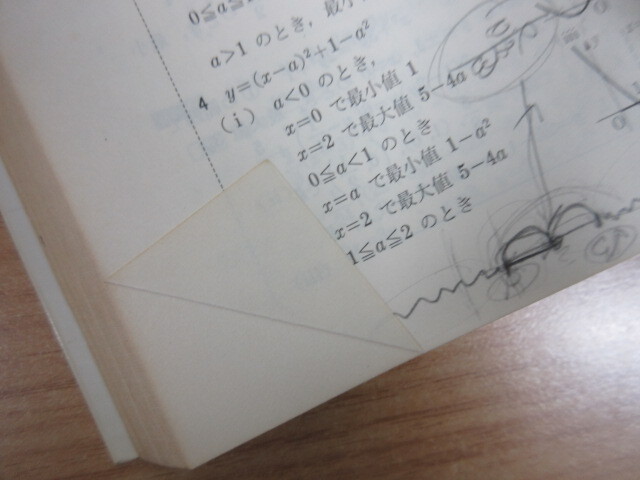 0≦a≦
a>1 のとき，最小
4 y=(x-a)²+1-a²
(i) a<0 のとき，
x=0 で最小値 1
x=2 で最大値 5-4a
0≦a<1 のとき
x=a で最小値 1-a²
x=2 で最大値 5-4a
1≦a≦2 のとき